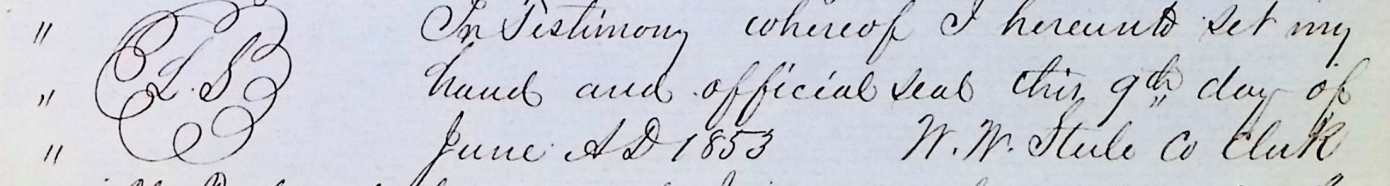 " In Testimony whereof I hereunto set my
" L. S hand and official seal this 9th day of
" June A D 1853 W. W. Steele Co Clerk